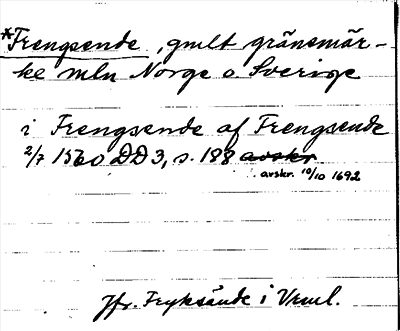 *Frengsende, gmlt gränsmär-
ke mln Norge o Sverige
i Frengsende af Frengsende
2/7 1560 DD3, s. 188 avskr.
avskr. 10/10 1692
Jfr. Fryksände i Vrml.